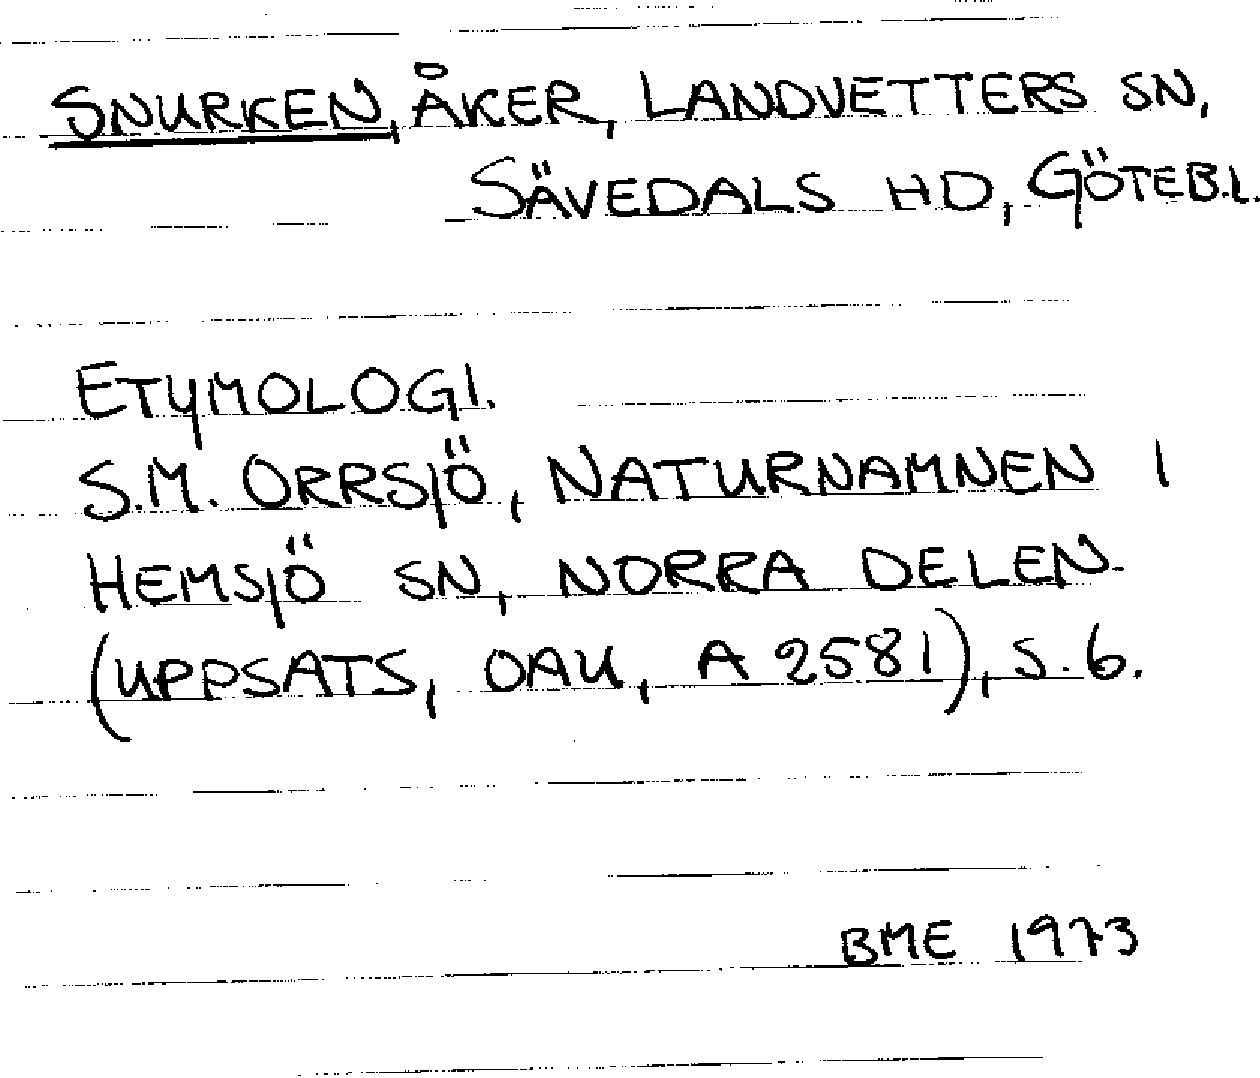 SNURKEN, ÅKER, LANDVETTERS SN,
SÄVEDALS HD, GÖTEB.L.
ETYMOLOGI.
S.M. ORRSJÖ, NATURNAMNEN I
HEMSJÖ SN, NORRA DELEN.
(UPPSATS, OAU, A 2581), S. 6.
BME 1973